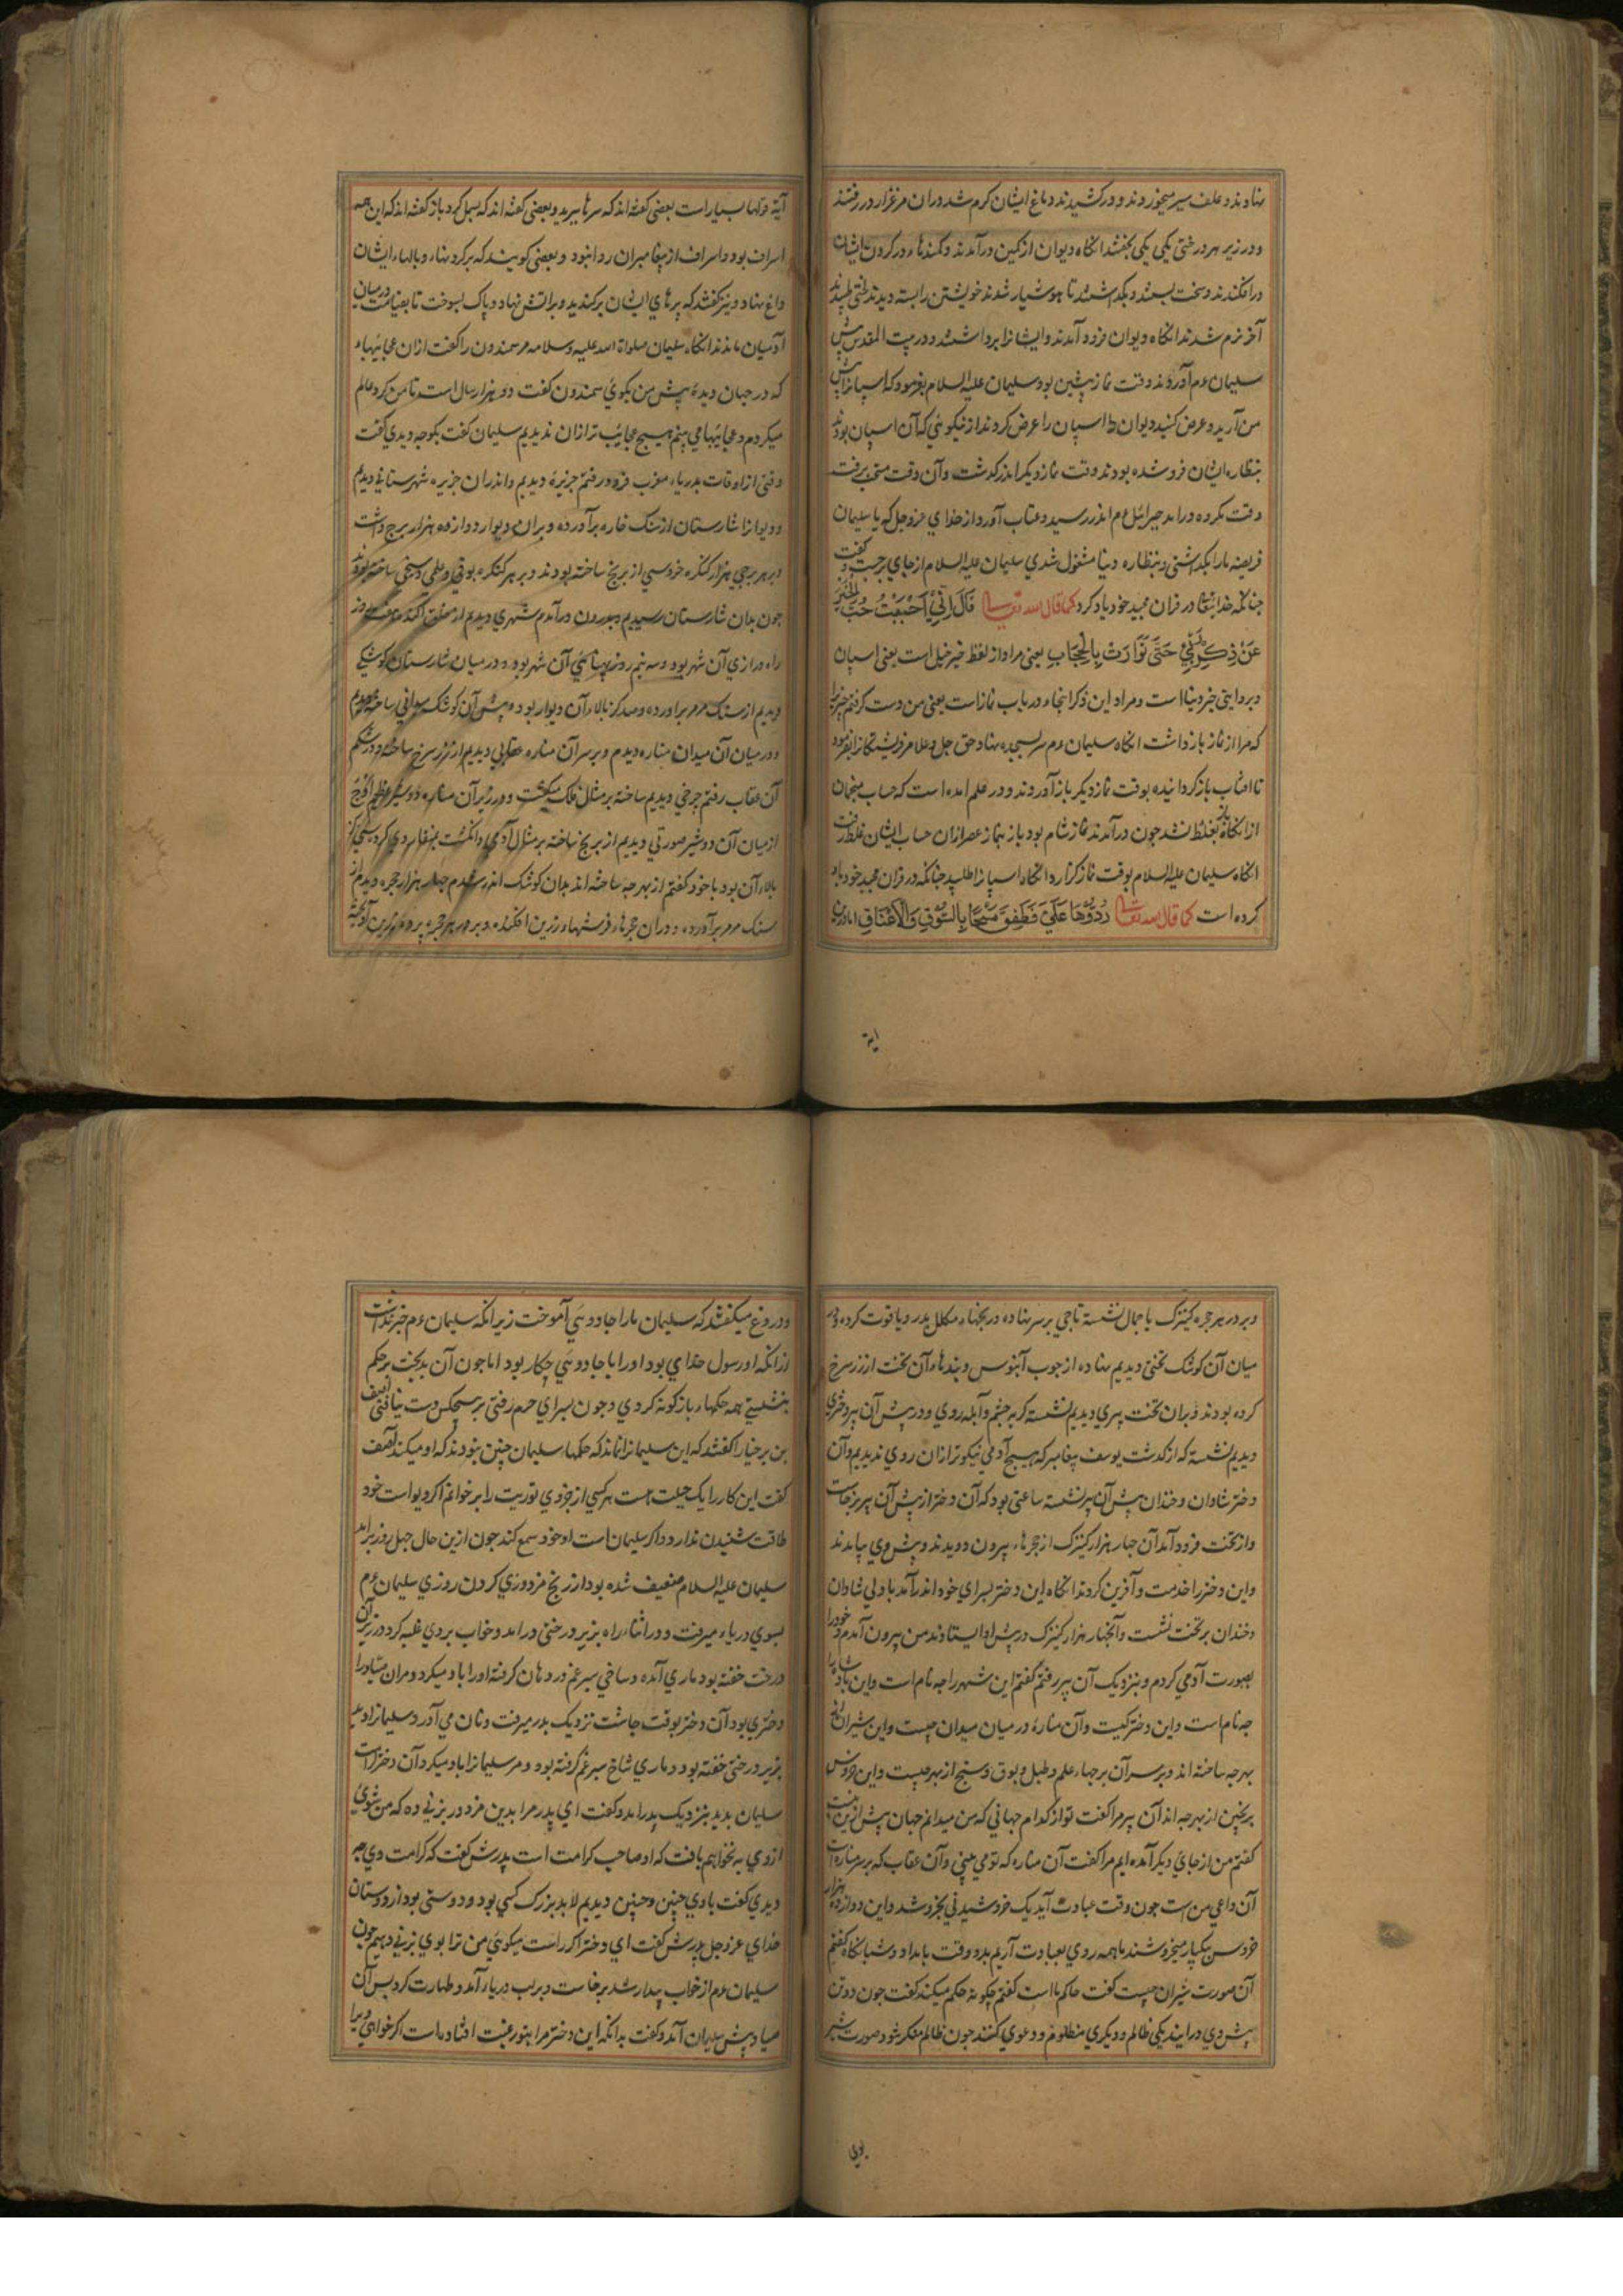 نهادند و علف سیر میخوردند و درکشیدند دماغ ایشان کرم شد دران مرغزار در رفتند
و در زیر هر درختی یکی یکی بخفتند انکاه دیوان از کمین درآمدند و کمندهاء در کردن ایشان
درافکندند و سخت ببستند و بکداشتند تا هوشیار شدند خویشتن را بسته دیدند لختی طپیدند
آخر نرم شدند انکاه دیوان فرود آمدند و ایشانرا برداشتند و در بیت المقدس پیش
سلیمان عم آوردند وقت نماز پیشین بود سلیمان علیه السلام بفرمود که اسپانرا پیش
من آرید و عرض کنید دیوان اسپان را عرض کردند از نیکویی که آن اسپان بودند
بنظاره ایشان فروشده بودند وقت نماز دیکر اندر کذشت و آن وقت مستحب برفت
وقت مکروه درامد جبرائیل عم اندر رسید و عتاب آورد از خدای عزوجل که یا سلیمان
فریضه ما را بکداشتی و بنظاره دنیا مشغول شدی سلیمان علیه السلام از جای برجست و کفت
جنانکه خدایتعالی در قران مجید خود یاد کرد کما قال الله تعالی فَقَالَ اِنِّی اَحْبَبْتُ حُبَّ الْخَیْرِ
عَنْ ذِکْرِ رَبِّی حَتَّی تَوَارَتْ بِالْحِجَابِ یعنی مراد از لفظ خیر خیل است یعنی اسپان
و بروایتی خیر دنیا است و مراد این ذکر اینجا در باب نماز است یعنی من دوست کرفتم چیزیرا
که مرا از نماز بازداشت انکاه سلیمان عم سر بسجده نهاد حق جل و علا مر فریشتکانرا بفرمود
تا افتاب بازکردانیده بوقت نماز دیکر باز آوردند و در علم امده است که حساب منجمان
از انکاه باز بغلط شد جون درآمدند نماز شام بود باز بنماز عصر ازان حساب ایشان غلط رفت
انکاه سلیمان علیه السلام بوقت نماز کزارد انکاه اسپانرا طلبید جنانکه در قران مجید خود یاد
کرده است کما قال الله تعالی رُدُّوهَا عَلَیَّ فَطَفِقَ مَسْحًا بِالسُّوقِ وَالْاَعْنَاقِ اما درین
ایة
آیة قولها بسیار است بعضی کفته اند که سرها ببرید و بعضی کفته اند که بسبل کرد باز کفته اند که این همه
اسراف بود و اسراف از پیغامبران روا نبود و بعضی کویند که بر کردنهاء و بالهاء ایشان
داغ نهاد و نیز کفتند که پرهای ایشان برکندید و براتش نهاد و پاک بسوخت تا بقیامت درمیان
آدمیان ماندند انکاه سلیمان صلواة الله علیه و سلامه مر سمندون را کفت ازان عجایبهاء
که در جهان دیدۀ پیش من بکوی سمندون کفت دو هزار سال است تا من کرد عالم
میکردم و عجایبها می بینم هیچ عجایب تر ازان ندیدیم سلیمان کفت بکو جه دیدی کفت
وقتی از اوقات بدریاء مغرب فرو رفتم جزیرۀ دیدیم و اندران جزیره شهرستانی دیدیم
و دیوار انشارستان از سنک خاره برآورده و بران دیوار دوازده هزار برج داشت
و بر هر برجی هزار کنکره خروسی از برنج ساخته بودند و بر هر کنکره بوقی و علمی و سنجی ساخته بودند
جون بدان شارستان رسیدیم و بدرون درآمدم شهری دیدیم از خلق اکنده هفت روز
راه درازی آن شهر بود و سه نیم روز پهنائی آن شهر بود و در میان شارستان کوشکی
دیدیم از سنک مرمر براورده و صد کز بالاء آن دیوار بود و پیش آن کوشک میدانی ساخته دیدیم
و در میان آن میدان مناره دیدم و بر سر آن مناره عقابی دیدیم از زر سرخ ساخته و در شکم
آن عقاب رفتم جرخی دیدیم ساخته بر مثال فلک میکشت و در زیر آن مناره دو شیر عظیم
از میان آن دو شیر صورتی دیدیم از برنج ساخته بر مثال آدمی و انکشت بمنقار
بالاء آن بود با خود کفتم از بهر جه ساخته اند بدان کوشک اندر شدم جهار هزار حجره دیدم از
سنک مرمر برآورده و دران حجرهاء فرشتهاء زرین افکنده و بر در هر حجره پردهء زرین آویخته
و بر در هر حجره کنیزک با جمال نشسته تاجی بر سر نهاده در بختهاء مکلل بدر و یاقوت کرده و در
میان آن کوشک تختی دیدیم نهاده از جوب آبنوس و بندهاء آن تخت از زر سرخ
کرده بودند و بران تخت پیری دیدیم نشسته کربه جشم و آبله روی و در پیش آن پیر دختری
دیدیم نشسته که از کذشت یوسف پیغامبر که هیچ آدمی نیکوتر ازان روی ندیدیم و آن
دختر شادان و خندان پیش آن پیر نشسته ساعتی بود که آن دختر از پیش آن پیر برخاست
و از تخت فرود آمد آن جهار هزار کنیزک از حجرهاء بیرون دویدند و پیش وی بیامدند
و این دختر را خدمت و آفرین کردند انکاه این دختر بسرای خود اندر آمد با دلی شادان
و خندان بر تخت نشست و آنجهار هزار کنیزک در پیش او ایستادند من بیرون آمدم و خود را
بصورت آدمی کردم و بنزدیک آن پیر رفتم کفتم این شهر را جه نام است و این پادشاه را
جه نام است و این دختر کیست و آن منارۀ در میان میدان چیست و این شیران از
بهر جه ساخته اند و بر سر آن برجهاء علم و طبل و بوق و سنج از بهر چیست و این خروس
برنجین از بهر جه اند آن پیر مرا کفت تو از کدام جهانی که من میدانم جهان پیش ازین نیست
کفتم من از جای دیکر آمده ایم مرا کفت آن مناره که تو می بینی و آن عقاب که بر سر مناره است
آن داعی من است جون وقت عبادت آید یک خروشیدنی بخروشد و این دوازده هزار
خروس بیکبار میخروشند ما همه روی بعبادت آریم بدو وقت بامداد و شبانکاه کفتم
آن صورت شیران چیست کفت حاکم ما است کفتم جکونه حکم میکند کفت جون دو تن
پیش وی درایند یکی ظالم و دیکری مظلوم و دعوی کنند جون ظالم منکر شود صورت شیر
بوی
و دروغ میکفتند که سلیمان ما را جادوئی آموخت زیرا که سلیمان عم خبر نداشت
ازانکه او رسول خدای بود او را با جادوئی چکار بود اما جون آن بدبخت بر حکم
بنشستی همه حکمهاء بازکونه کردی و جون بسرای حرم رفتی بر هیچکس دست نیافتی آصف
بن برخیا را کفتند که این سلیمان را نماند که حکمها سلیمان جنین نبودند که او میکند آصف
کفت این کار را یک حیلت هست هر کسی از جزوی توریت را برخوانم اکر دیو است خود
طاقت شنیدن ندارد و اکر سلیمان است او خود سمع کند جون ازین حال جهل روز برامد
سلیمان علیه السلام ضعیف شده بود از رنج مزدوری کردن روزی سلیمان عم
بسوی دریاء میرفت و در اثناء راه بزیر درختی درامد و خواب بر وی غلبه کرد در زیر آن
درخت خفته بود ماری آمده و ساخی سبرغم در دهان کرفته او را باد میکرد و مران صیاد را
دختری بود آن دختر بوقت جاشت نزدیک پدر میرفت و نان می آورد و سلیمانرا دید
بزیر درختی خفته بود و ماری شاخ سبرغم کرفته بود و مر سلیمانرا باد میکرد آن دختر از
سلیمان بدید بنزدیک پدر امد و کفت ای پدر مرا بدین مزدور بزنی ده که من شوی
از وی به نخواهم یافت که او صاحب کرامت است پدرش کفت که کرامت وی جه
دیدی کفت با وی جنین و جنین دیدیم لابد بزرک کسی بود و دوستی بود از دوستان
خدای عزوجل پدرش کفت ای دختر اکر راست میکوئی من ترا بوی بزنی دهیم جون
سلیمان عم از خواب بیدار شد برخاست و بر لب دریاء آمد و طهارت کرد پس آن
صیاد پیش سلیمان آمد و کفت بدانکه این دختر مرا بتو رغبت افتاده است اکر خواهی ویرا